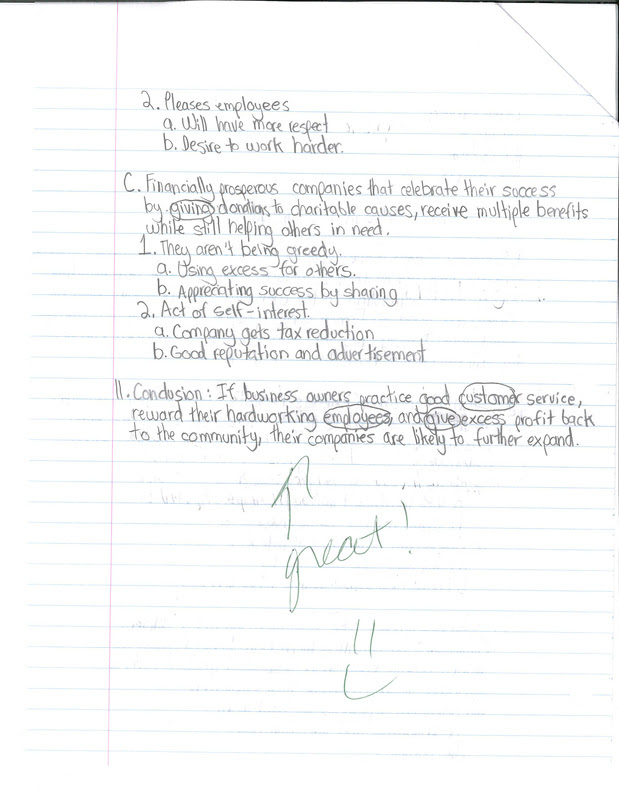 2. Pleases employees
a. Will have more respect
b. Desire to work harder.
C. Financially prosperous companies that celebrate their success
by giving donations to charitable causes, receive multiple benefits
while still helping others in need.
1. They aren't being greedy.
a. Using excess for others.
b. Appreciating success by sharing
2. Act of self-interest.
a. Company gets tax reduction
b. Good reputation and advertisement
II. Conclusion: If business owners practice good customer service,
reward their hardworking employees, and give excess profit back
to the community, their companies are likely to further expand.
great!